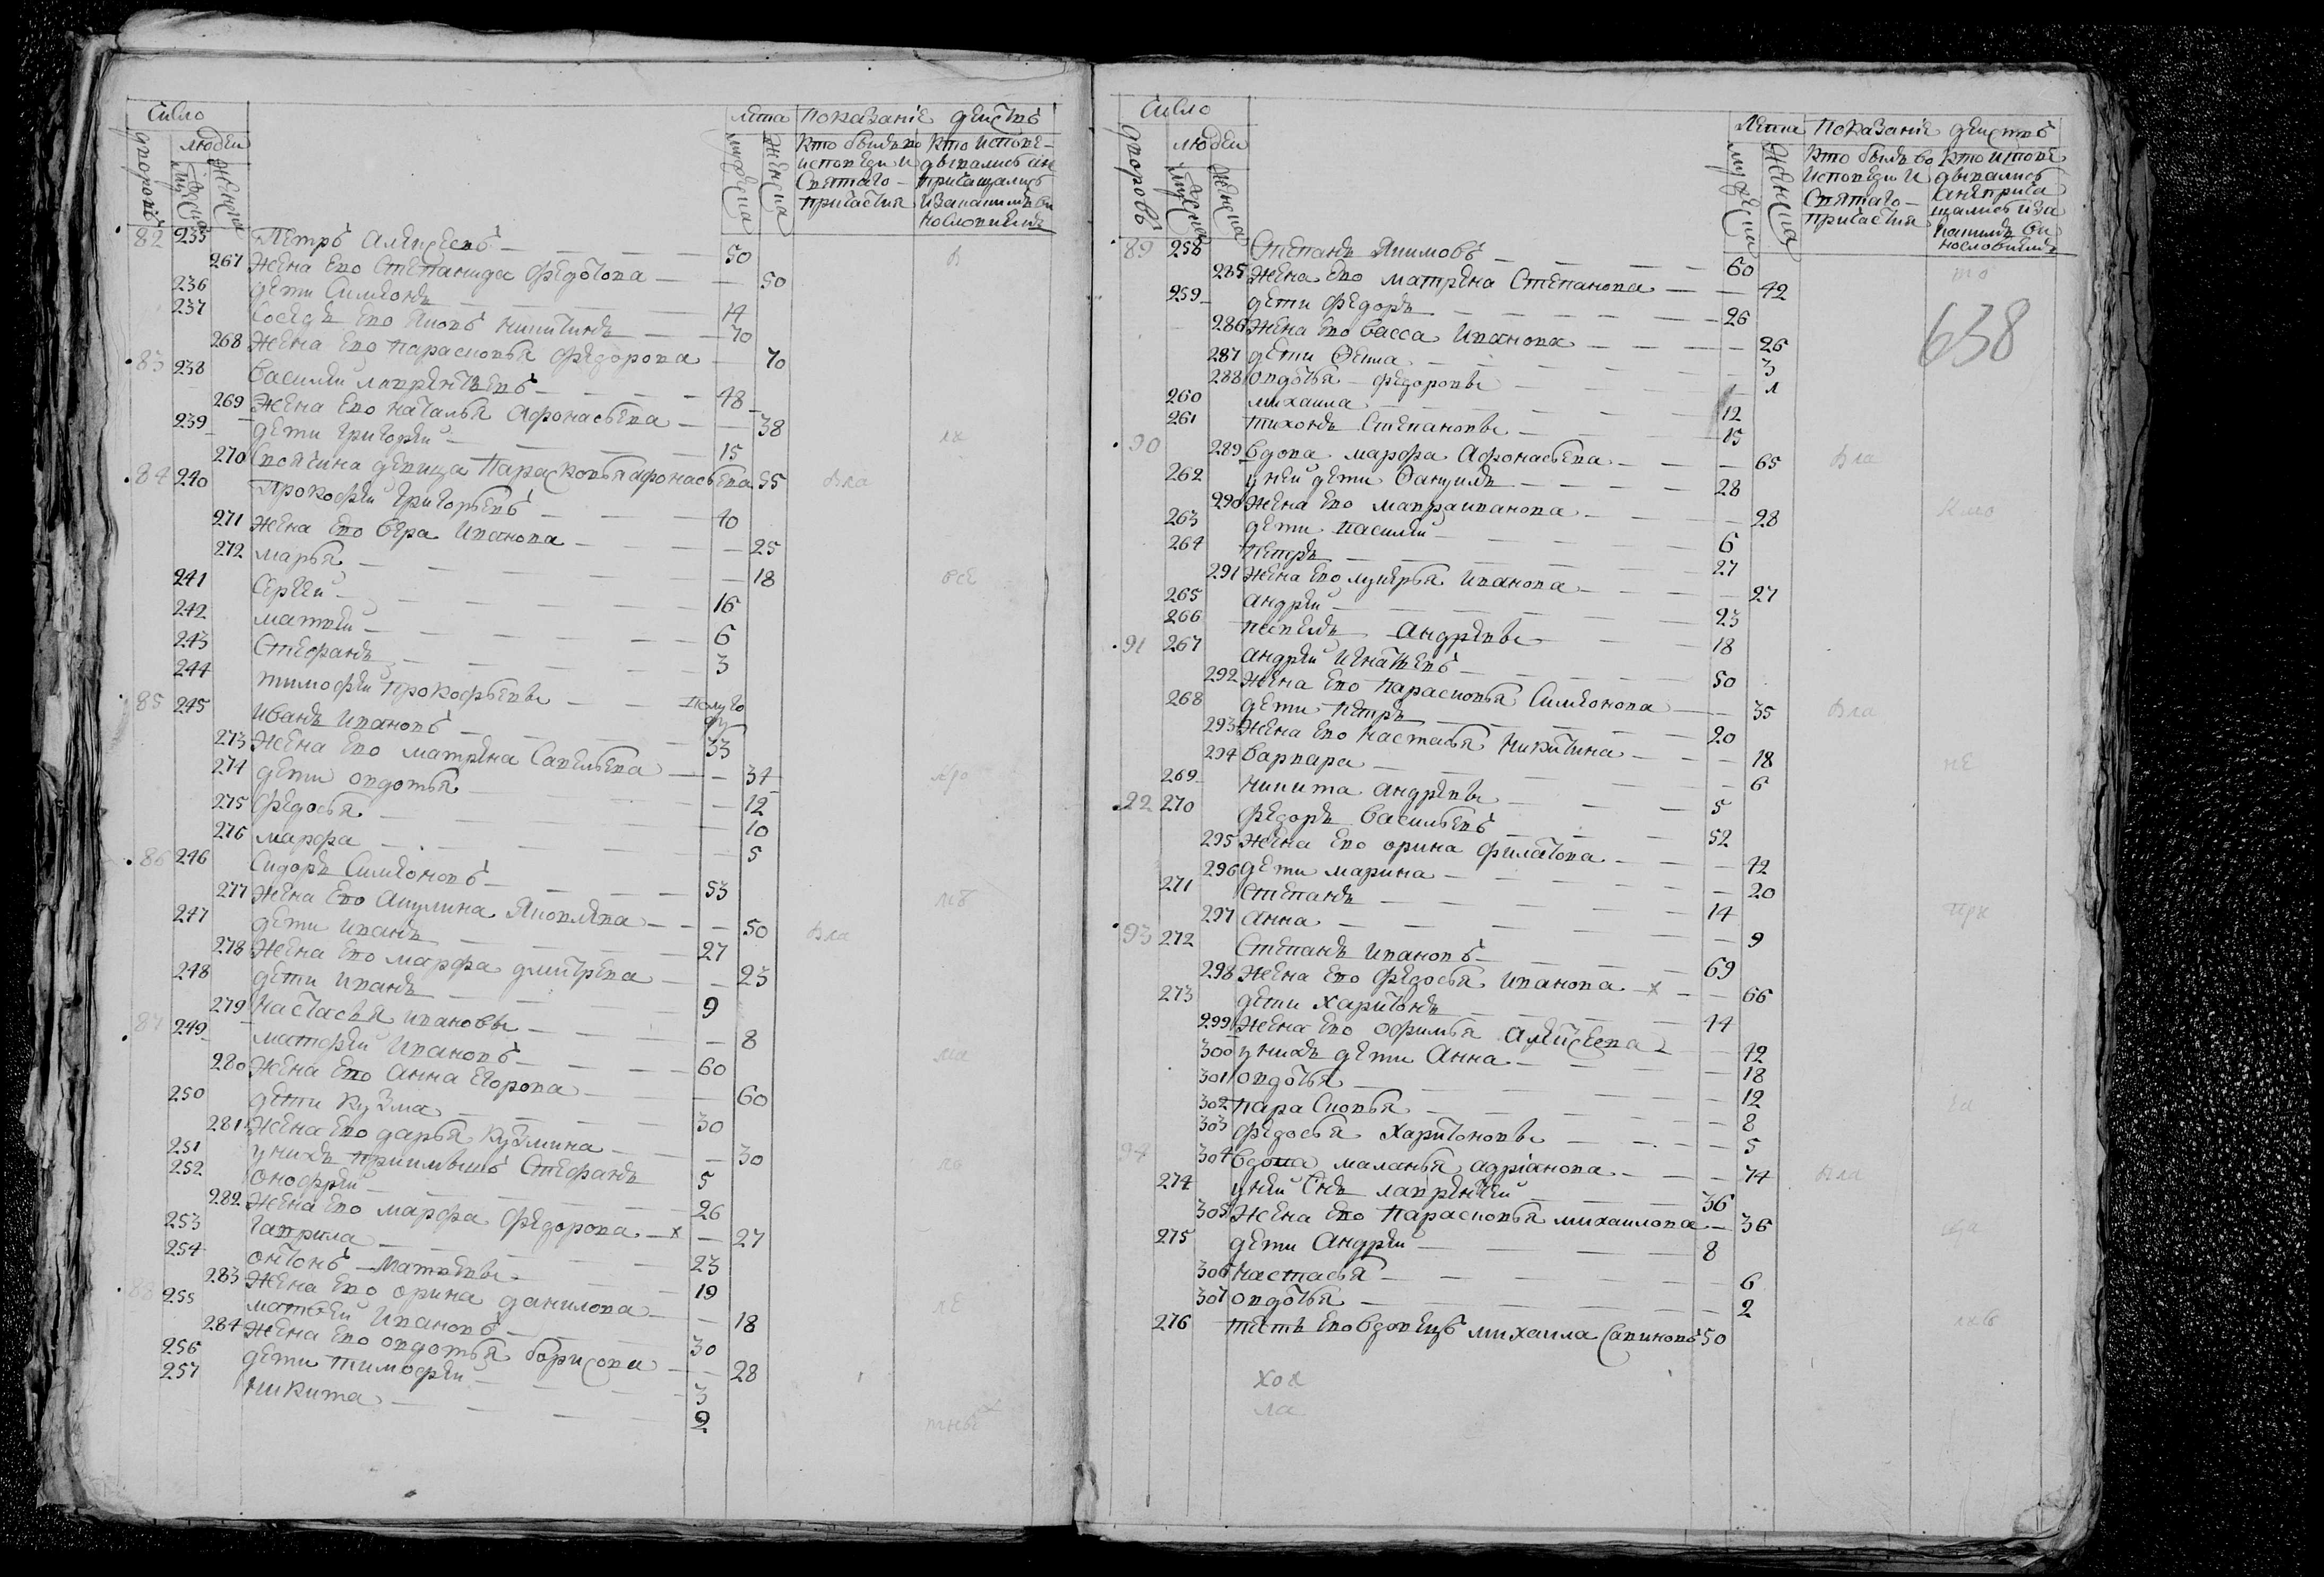 Число
дворовъ
людеи
мужеска
женска
лета
мужеска
женска
показание деиствъ
кто былъ во исповеди и святаго причастия
кто исповедывались а не причащались и за какимъ винословиемъ
82 235 Петръ Алексеевъ — 50
267 жена ево Степанида Федотова — 50
236 дети Симионъ — 14
237 соседъ ево Яковъ Никитинъ — 70
268 жена ево Парасковья Федорова — 70
83 238 Василеи Лаврентьевъ — 48
269 жена ево Наталья Афонасьева — 38
239 дети Григореи — 15
270 своячина девица Парасковья Афонасьева 55
84 240 Прокофеи Григорьевъ — 40
271 жена ево Вера Иванова — 25
272 Марья — 18
241 Сергеи — 16
242 Матвеи — 6
243 Стефанъ — 3
244 Тимофеи Прокофьевы — полуго ду
85 245 Иванъ Ивановъ — 33
273 жена ево Матрена Савельева — 34
274 дети Овдотья — 12
275 Федосья — 10
276 Марфа — 5
86 246 Сидоръ Симионовъ — 53
277 жена ево Акулина Яковлева — 50
247 дети Иванъ — 27
278 жена ево Марфа Дмитрева — 23
248 дети Иванъ — 9
279 Настасья Ивановы — 8
87 249 Матфеи Ивановъ — 60
280 жена ево Анна Егорова — 60
250 дети Кузма — 30
281 жена ево Дарья Кузмина — 30
251 у нихъ приимышъ Стефанъ 5
252 Онофреи — 26
282 жена ево Марфа Федорова — х — 27
253 Гаврила — 23
254 Онтонъ Матвеевы — 19
283 жена ево Орина Данилова — 18
88 255 Матвеи Ивановъ — 30
284 жена ево Овдотья Борисова — 28
256 дети Тимофеи — 3
257 Никита — 2
Число
дворовъ
людеи
мужеска
женска
Лета
мужеска
женска
показание деиствъ
кто былъ во исповеди и святаго причастия
кто исповедывались а не причащались и за какимъ винословиемъ
638
89 258 Степанъ Якимовъ — 60
285 жена ево Матрена Степанова — 42
259 дети Федоръ — 26
286 жена ево Васса Иванова — 26
287 дети Фекла — 3
288 Овдотья Федоровы — 1
260 Михаила — 12
261 Тихонъ Степановы — 15
90 289 вдова Марфа Афонасьева — 65
262 у неи дети Факулъ — 28
290 жена ево Мавра Иванова — 28
263 дети Василеи — 6
264 Петръ — 27
291 жена ево Лукерья Иванова — 27
265 Андреи — 23
266 Павелъ Андреевы — 18
91 267 Андреи Игнатьевъ — 50
292 жена ево Парасковья Симионова — 35
268 дети Петръ — 20
293 жена ево Настасья Никитина — 18
294 Варвара — 6
269 Никита Андреевы — 5
92 270 Федоръ Васильевъ — 52
295 жена ево Орина Филатова — 42
296 дети Марина — 20
271 Степанъ — 14
297 Анна — 9
93 272 Степанъ Ивановъ — 69
298 жена ево Федосья Иванова — х — 66
273 дети Харитонъ — 44
299 жена ево Офимья Алексеева — 42
300 у нихъ дети Анна — 18
301 Овдотья — 12
302 Парасковья — 8
303 Федосья Харитоновы — 5
94 304 вдова Маланья Адрианова — 74
274 у неи снъ Лаврентеи — 36
305 жена ево Парасковья Михаилова — 36
275 дети Андреи — 8
306 Настасья — 6
307 Овдотья — 2
276 тесть ево вдовецъ Михаила Савиновъ 50